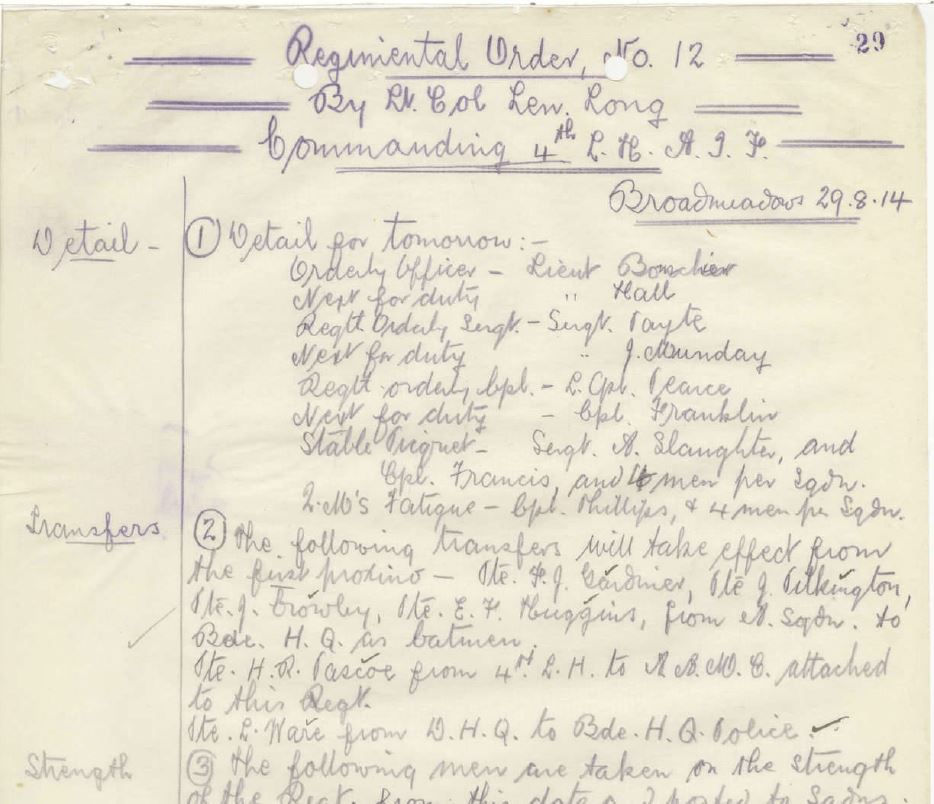 29
Regimental Order, No. 12
By Lt. Col Len. Long
Commanding 4th L. H. A. I. F.
Broadmeadows 29.8.14
Detail - ① Detail for tomorrow:-
Orderly Officer - Lieut Bourchier
Next for duty " Hall
Regtl Orderly Sergt. - Sergt. Tayte
Next for duty " J. Munday
Regtl orderly Cpl. - L. Cpl. Pearce
Next for duty - Cpl. Franklin
Stable Picquet - Sergt. A. Slaughter, and
Cpl. Francis, and 4 men per Sqdn.
Q.M's Fatigue - Cpl. Phillips, & 4 men per Sqdn.
Transfers ② The following transfers will take effect from
the first proximo - Pte. F. J. Gardiner, Pte J. Pilkington,
Pte. J. Crowley, Pte. E. F. Huggins, from A. Sqdn. to
Bde. H. Q. as batmen.
Pte. H. R. Pascoe from 4th L. H. to A. A. M. C. attached
to this Regt.
Pte. L. Ware from D. H. Q. to Bde. H. Q. Police.
Strength ③ The following men are taken on the strength
of the Regt. from this date and posted to Sqdns.